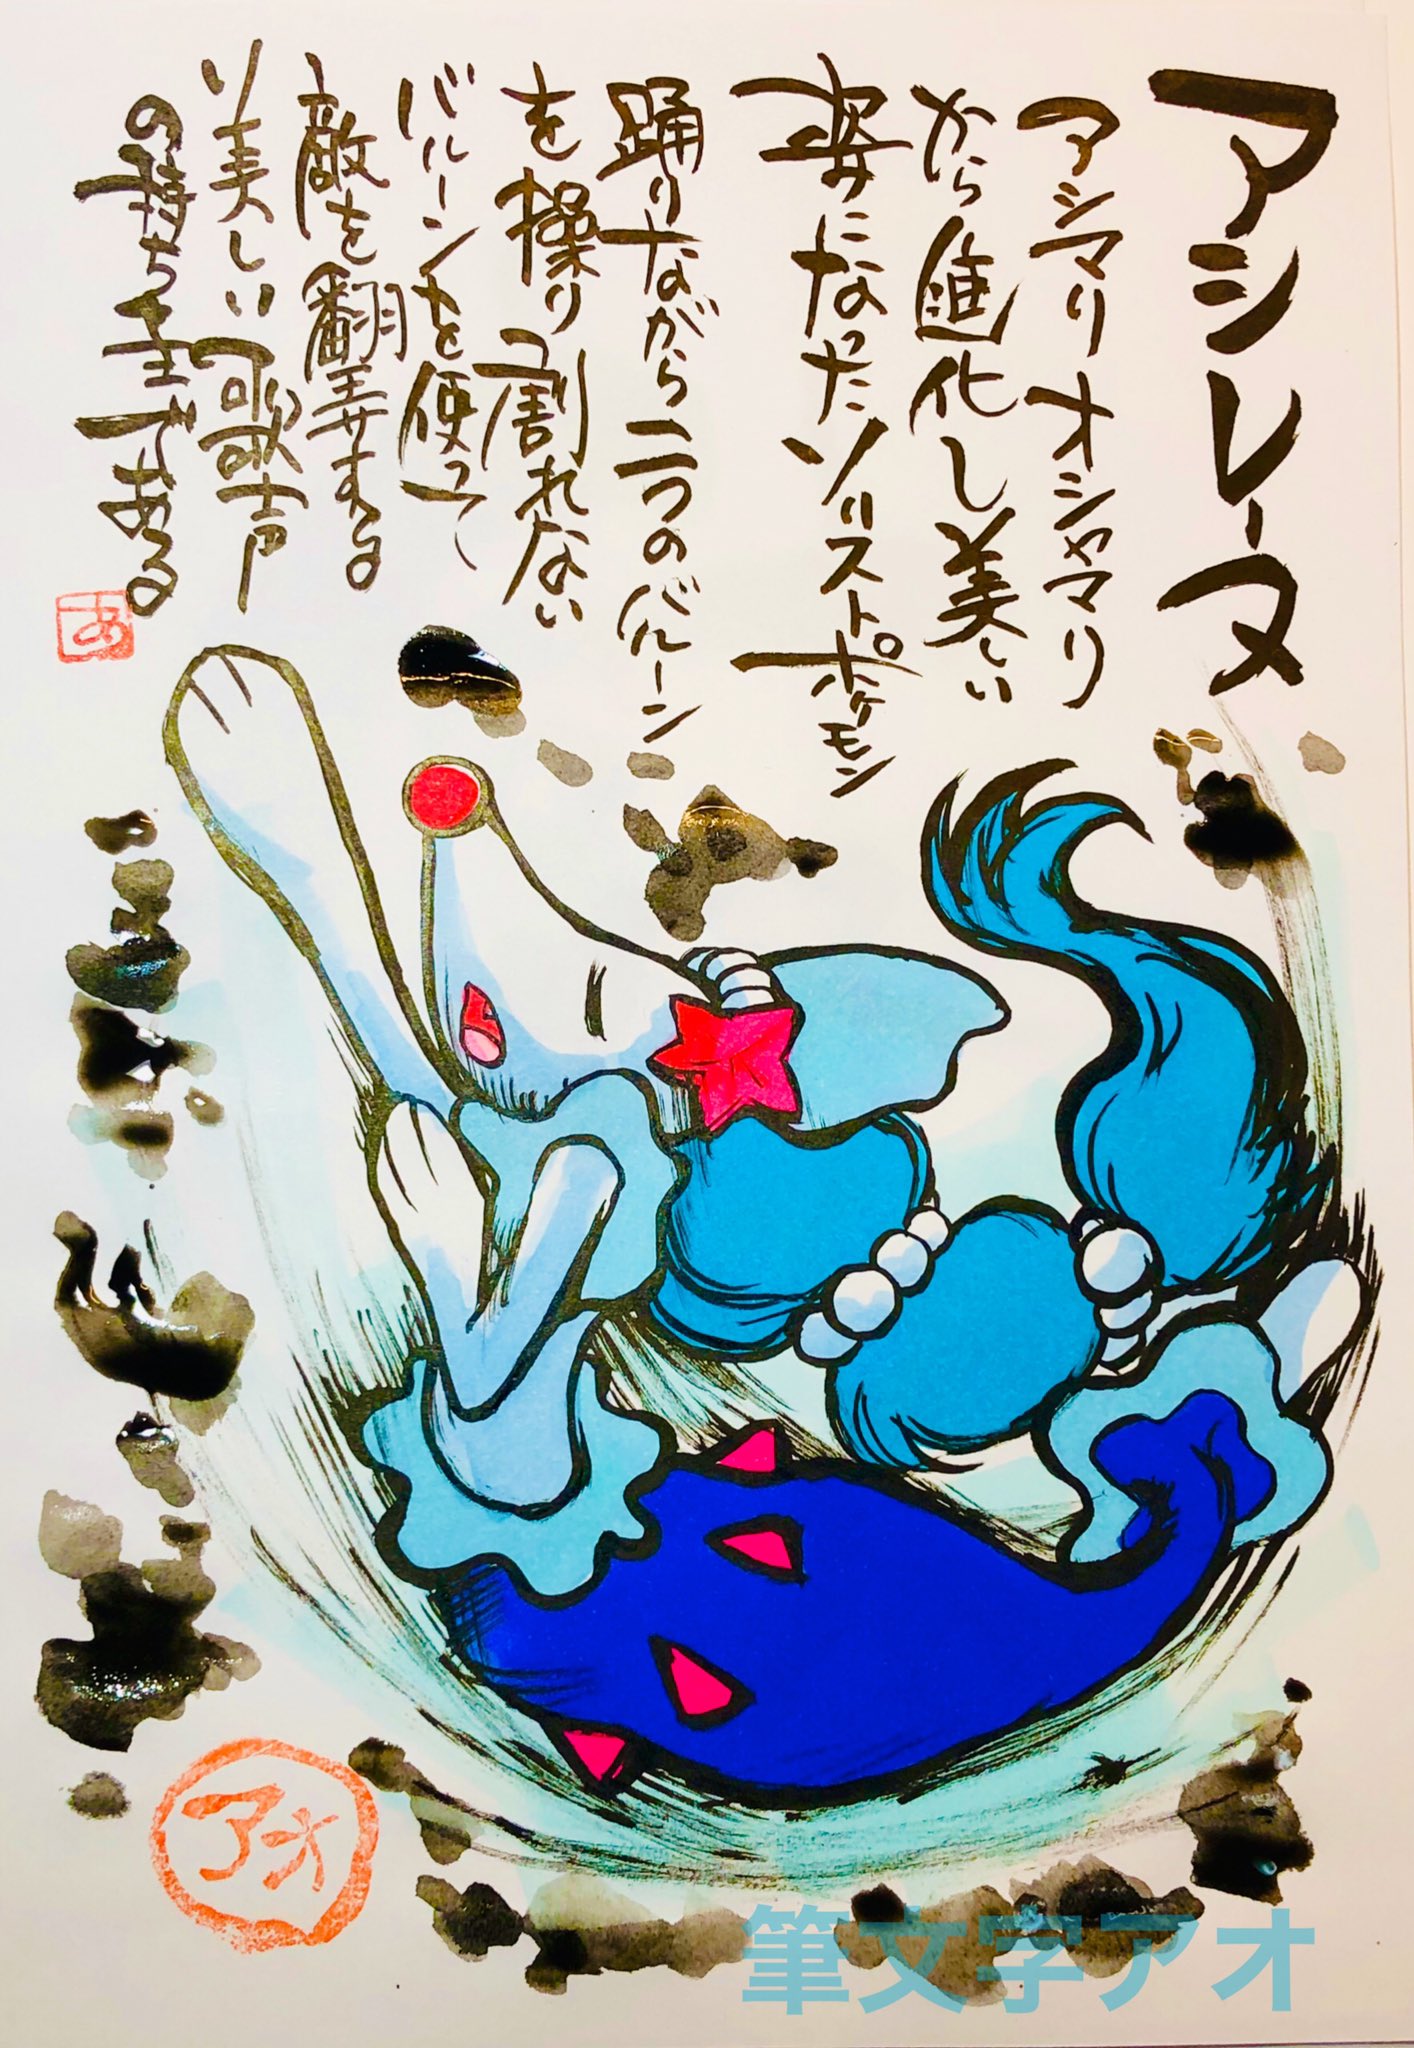 アシレーヌ
アシマリオシャマリ
から進化し美しい
姿になったソリストポケモン
踊りながら二つのバルーン
を操り割れない
バルーンを使って
敵を翻弄する
美しい歌声
の持ち主である
あ
アオ
筆文字アオ